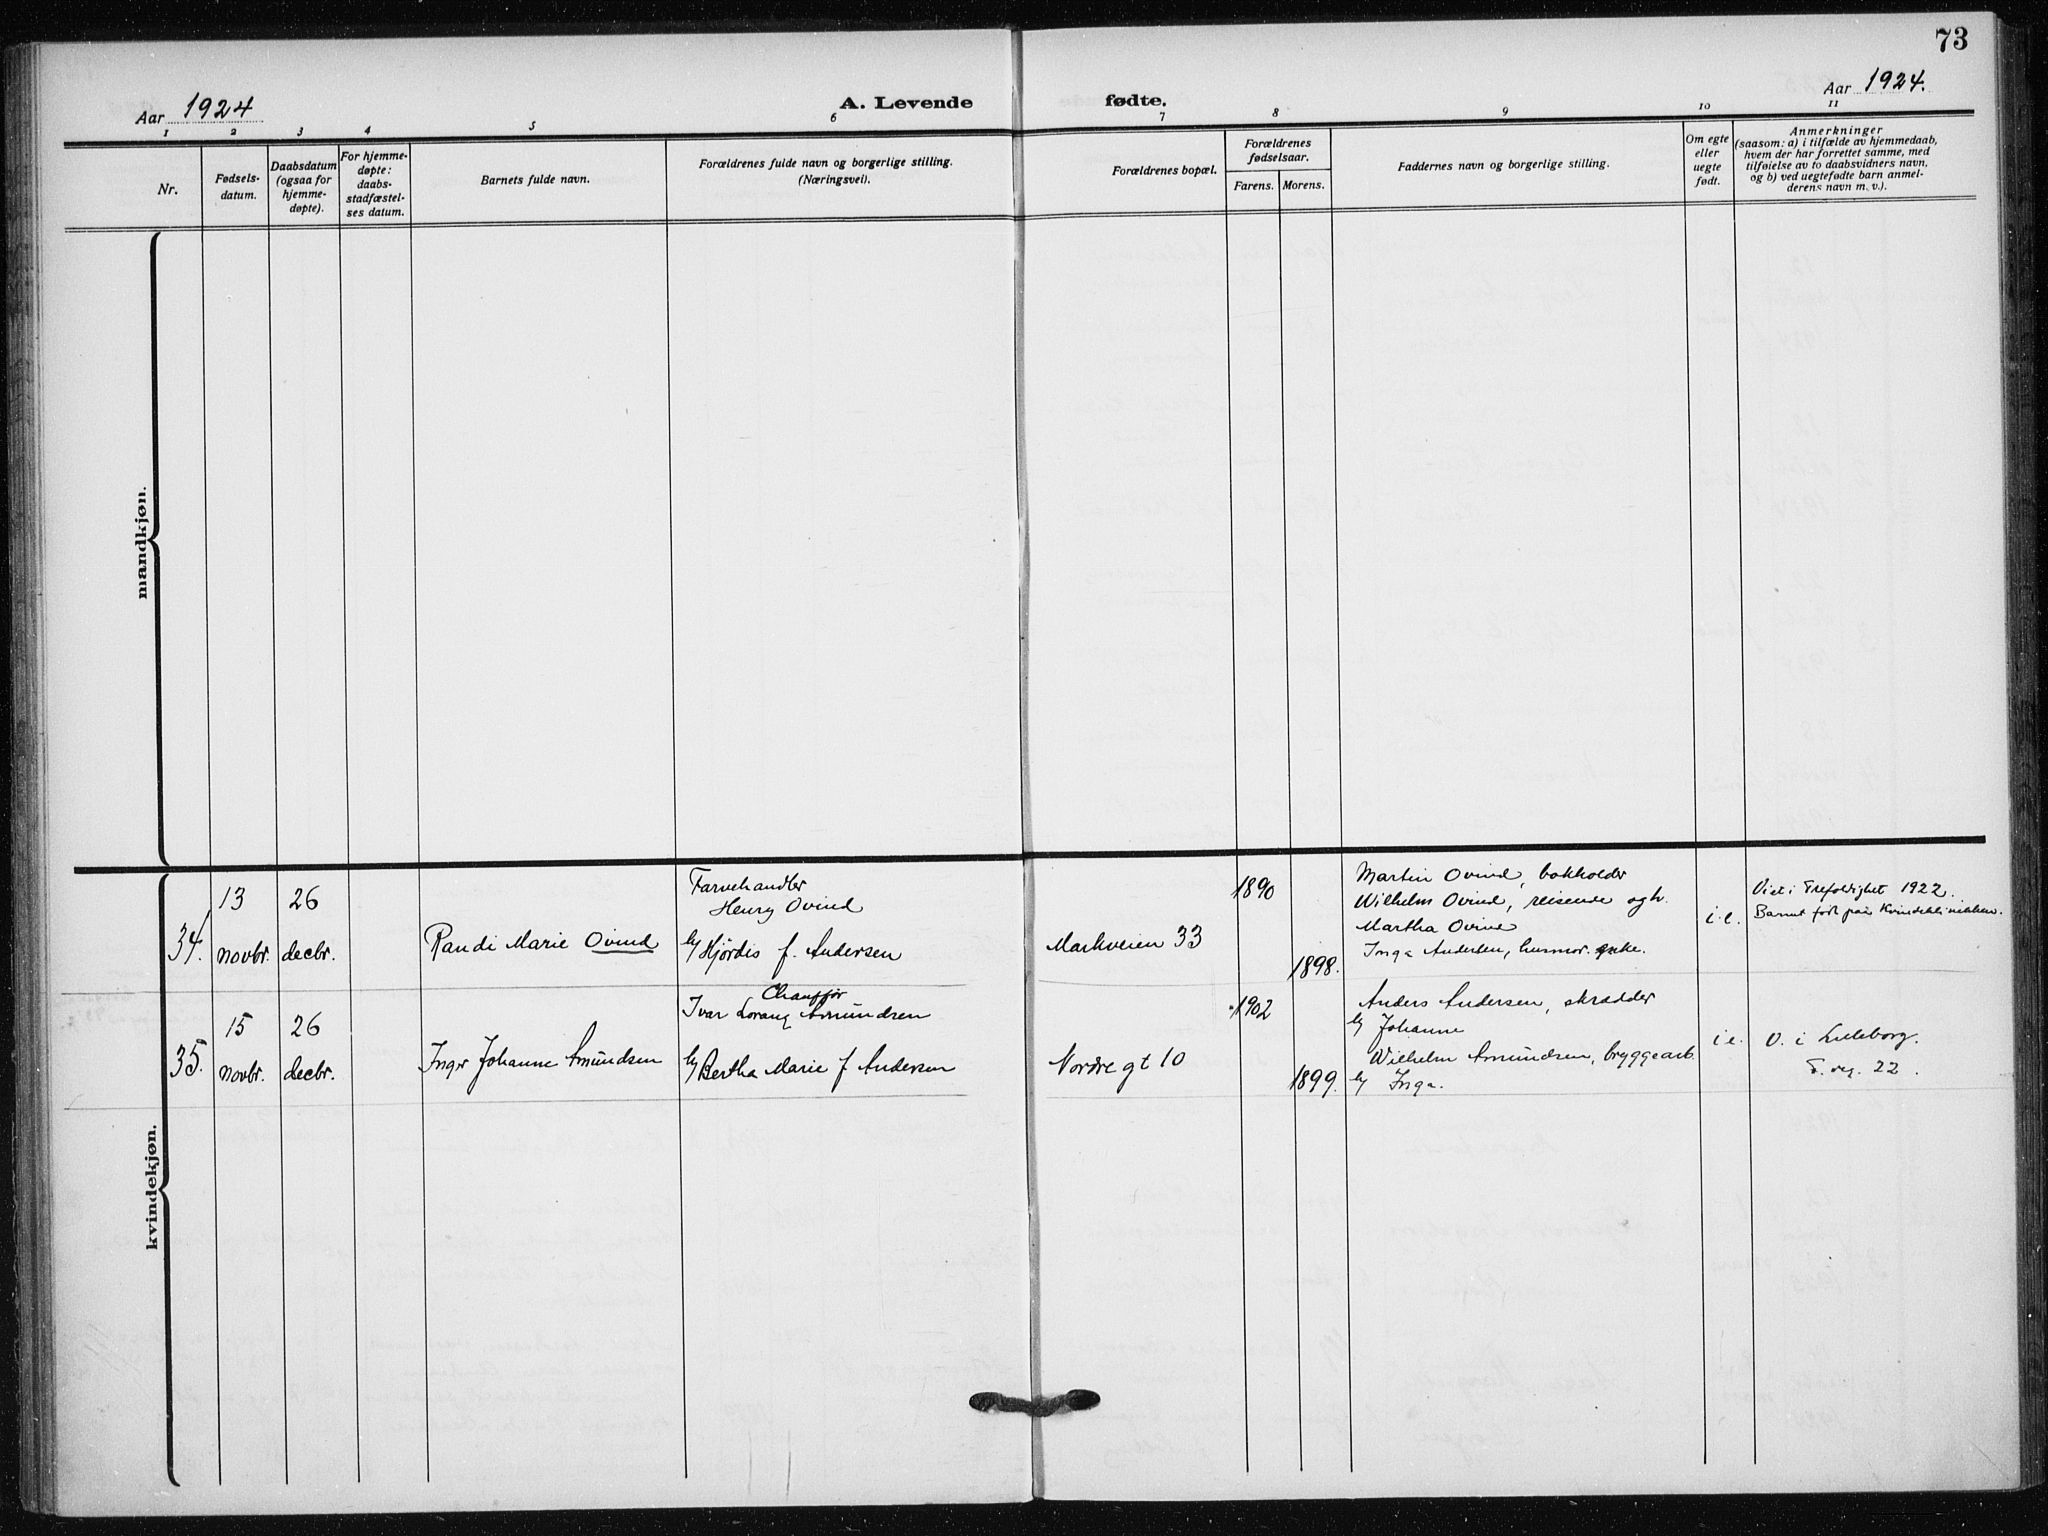 73
Aar 1924
A. Levende fødte.
Aar 1924.
1 2 3 4 5 6 7 8 9 10 11
Nr.
Fødsels-
datum.
Daabsdatum
(ogsaa for
hjemme-
døpte).
For hjemme-
døpte:
daabs-
stadfæstel-
ses datum.
Barnets fulde navn.
Forældrenes fulde navn og borgerlige stilling.
(Næringsvei).
Forældrenes bopæl.
Forældrenes
fødselsaar.
Farens. Morens.
Faddernes navn og borgerlige stilling.
Om egte
eller
uegte
født.
Anmerkninger
(saasom: a) i tilfælde av hjemmedaab,
hvem der har forrettet samme, med
tilføielse av to daabsvidners navn,
og b) ved uegtefødte barn anmel-
derens navn m. v.).
mandkjøn.
kvindekjøn.
34.
13
novbr.
26
decbr.
Randi Marie Ovind
Farvehandler
Henry Ovind
Hjørdis f. Andersen
Markveien 33
1890
1898.
Martin Ovind, bokholder
Wilhelm Ovind, reisende og h.
Martha Ovind
Inga Andersen, husmor. enke.
i. e.
Viet i Trefoldighet 1922.
Barnet født paa Kvindeklinikken.
35.
15
novbr.
26
decbr.
Inger Johanne Amundsen
Chauffør
Ivar Lorang Amundsen
Bertha Marie f Andersen
Nordre gt 10
1902
1899.
Anders Andersen, skrædder
Johanne
Wilhelm Amundsen, bryggearb.
Inga.
i e.
V. i Lilleborg.
22.